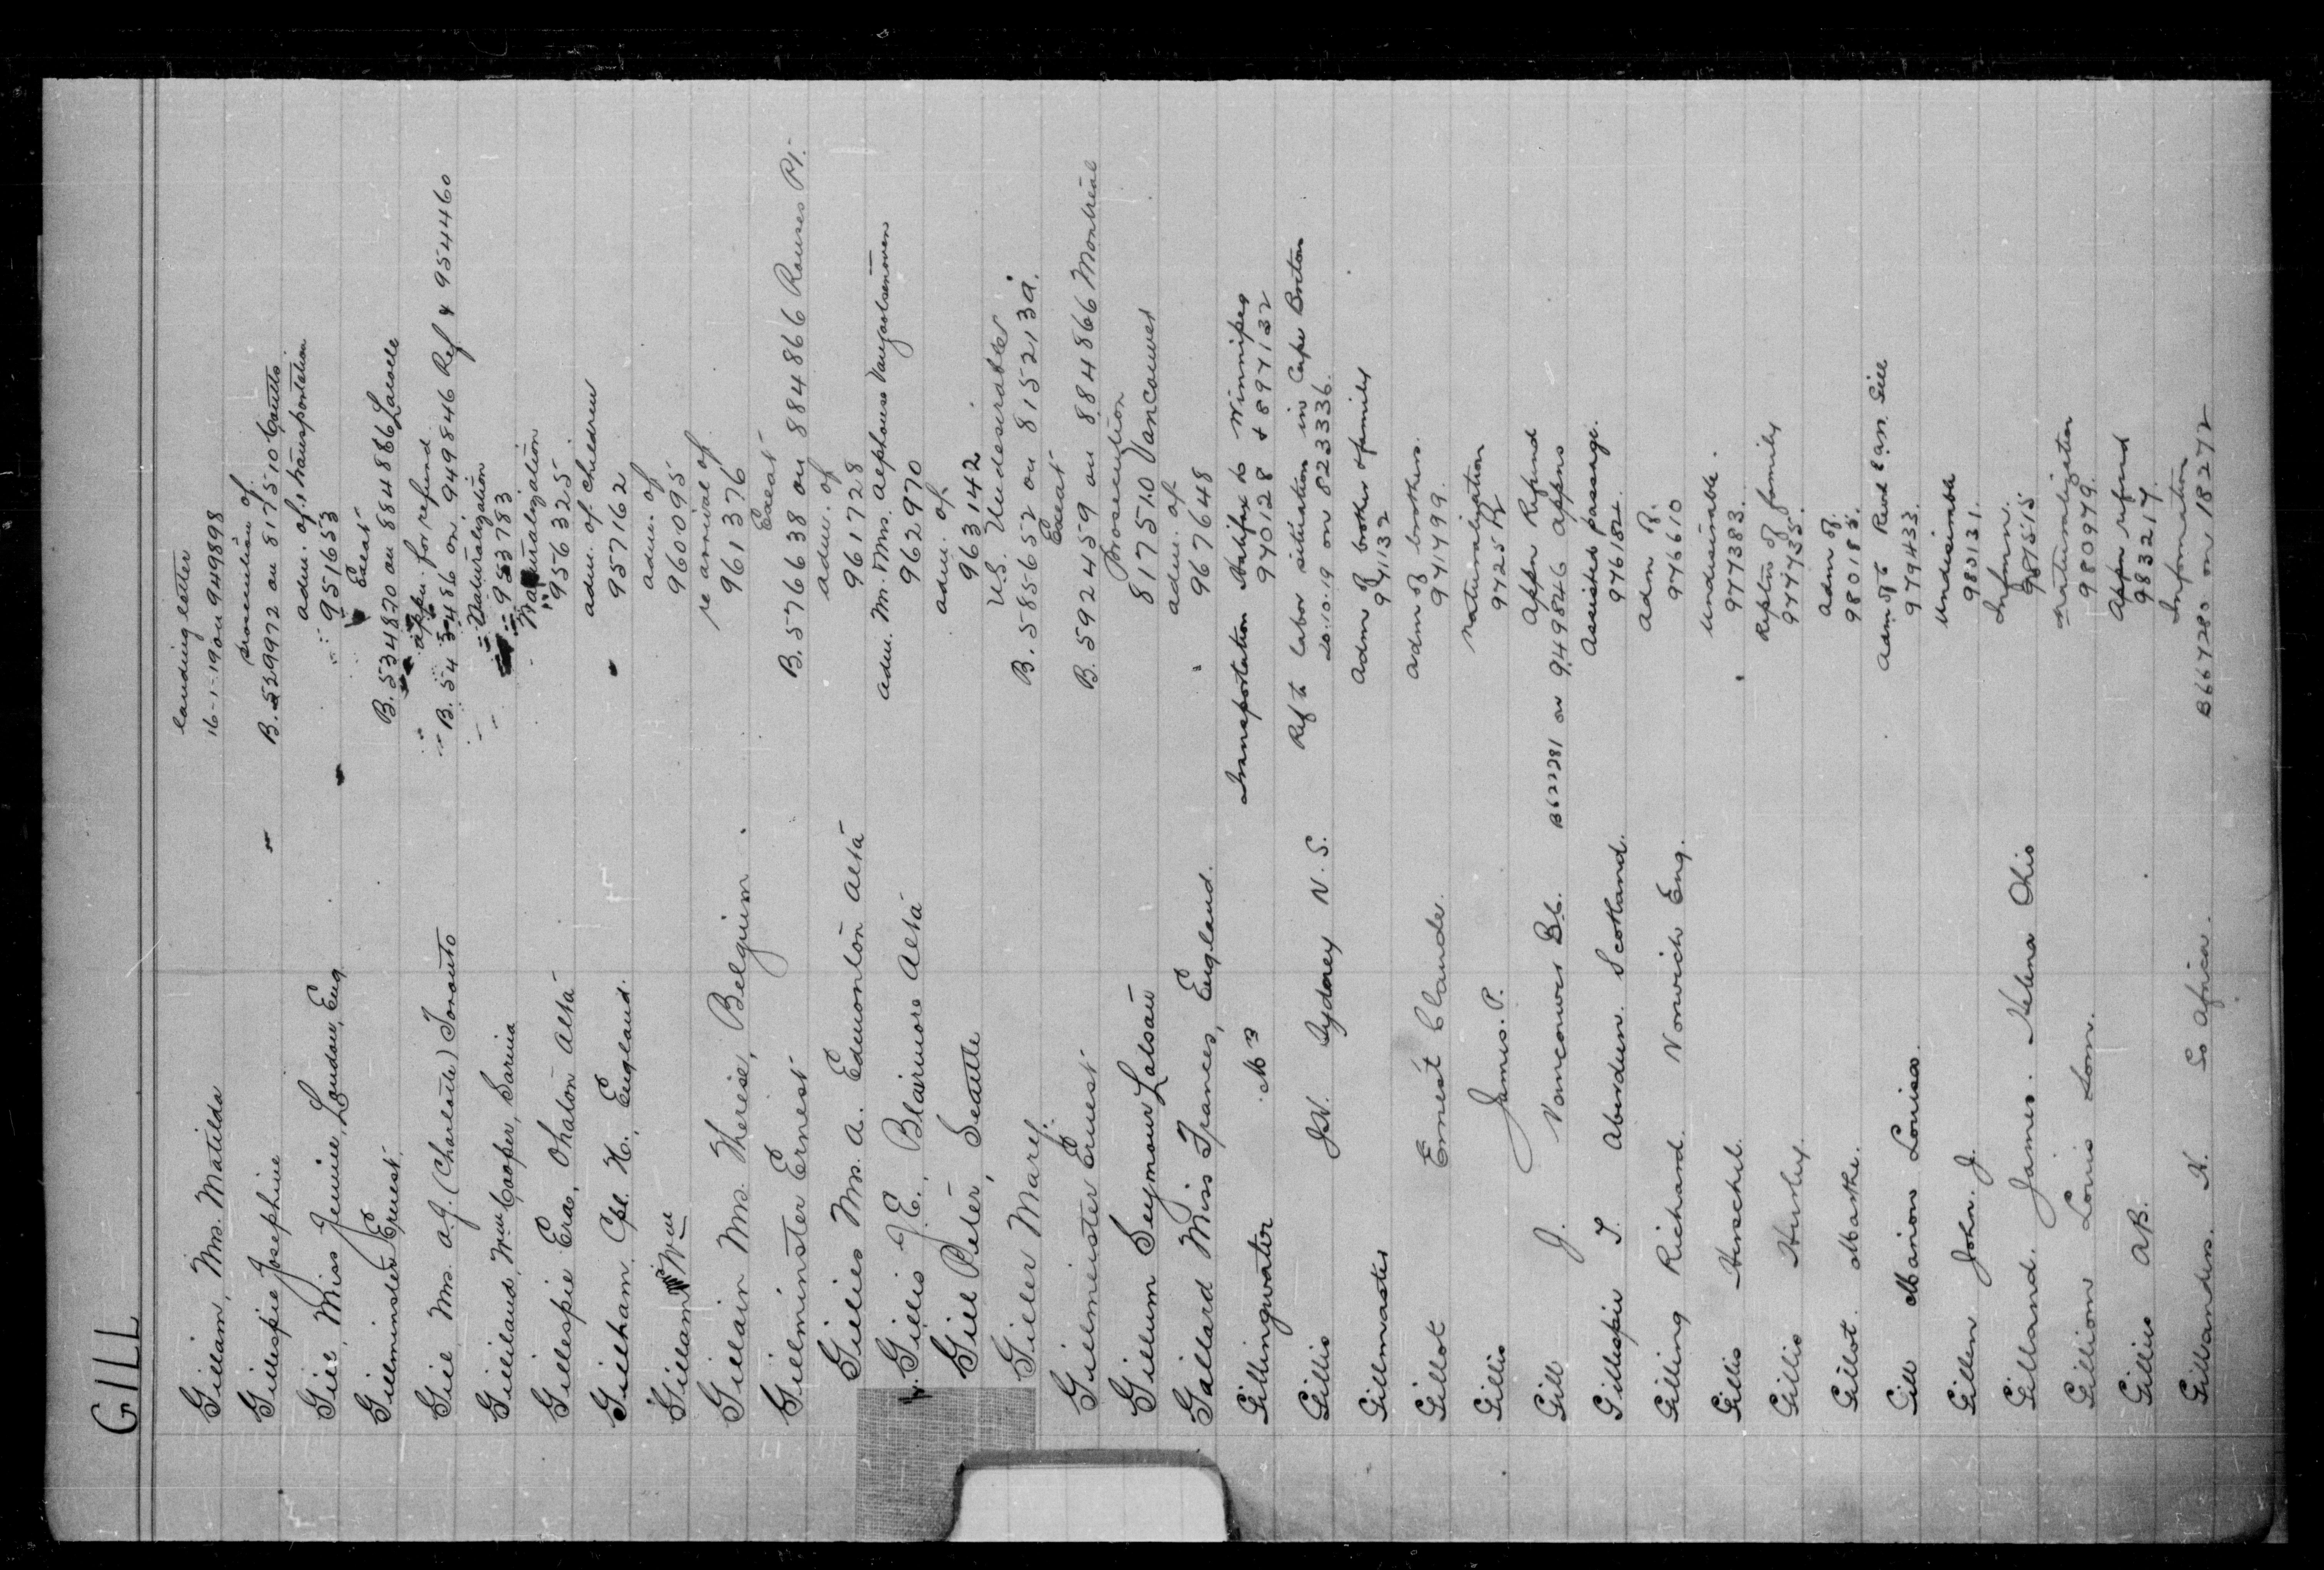 GILL
Gilliam, Mrs. Matilda
landing letter
16-1-19 on 949898
Gillespie Josephine
prosecution of
B. 529972 on 817510 Coutts
Gill, Miss Jennie, London, Eng
adm. of & transportation
951653
Gillminster Ernest
Exeat
B. 534820 on 884866 Lacolle
Gill, Mrs. A.J. (Charlotte) Toronto
appn. for refund
B. 543486 on 949846 Ref 4 954460
Gilliland, Wm Cooper, Sarnia
Naturalization
953783
Gillespie Era, Ohaton Alta
Naturalization
956325
Gillham, Cpl. H., England.
adm. of children
957162
Gillam Wm
adm. of
960095
Gillain Mrs. Therese, Belguim
re arrival of
961376
Gillminster Ernest
Exeat
B. 576638 on 884866 Rouses Pt.
Gillies Mrs. A. Edmonton Alta
adm. of
961728
Gillis J.E., Blairmore Alta
adm. M. Mrs. Alphonse
962970
Gill Peter, Seattle
adm. of
963142
Giller Mary.
U.S. Undesirables
B. 585652 on 815213a.
Gilmeister Ernest
Exeat
B. 592459 on 884866 Montreal
Gillum Seymour
Prosecution
817510 Vancouver
Gallard Miss Frances, England.
adm. of
967648
Gillingwater M 3
Transportation Halifax to Winnipeg
970128 + 8971132
Gillis J.N. Sydney N.S.
Ref to labor situation in Cape Breton
20.10.19 on 823336.
Gillmaster
Adm of brother & family
971132
Gillot Ernest Claude.
adm of brothers.
971499.
Gillis James. P.
Naturalization
9725 R
Gill J. Vancouver B.C.
Appn Refund
B622281 on 949846 Appns
Gillispie T. Aberdeen. Scotland.
Assisted passage.
976182.
Gilling Richard. Norwich Eng.
Adm of.
976610
Gillis Herschel.
undesirable.
977383.
Gillis Hurley.
Reptn of family
977735.
Gillot. Marthe.
adm of.
980185.
Gill Marion Louisa.
Adm of
979433.
Gillen John. J.
Undesirable
980131.
Gilland. James. Helena Ohio
Inform.
981515
Gilliom Louis Lom.
naturalization
980979.
Gillies A.B.
Appn refund
983217.
Gillanders. H. So Africa.
Information
B667280 on 18272